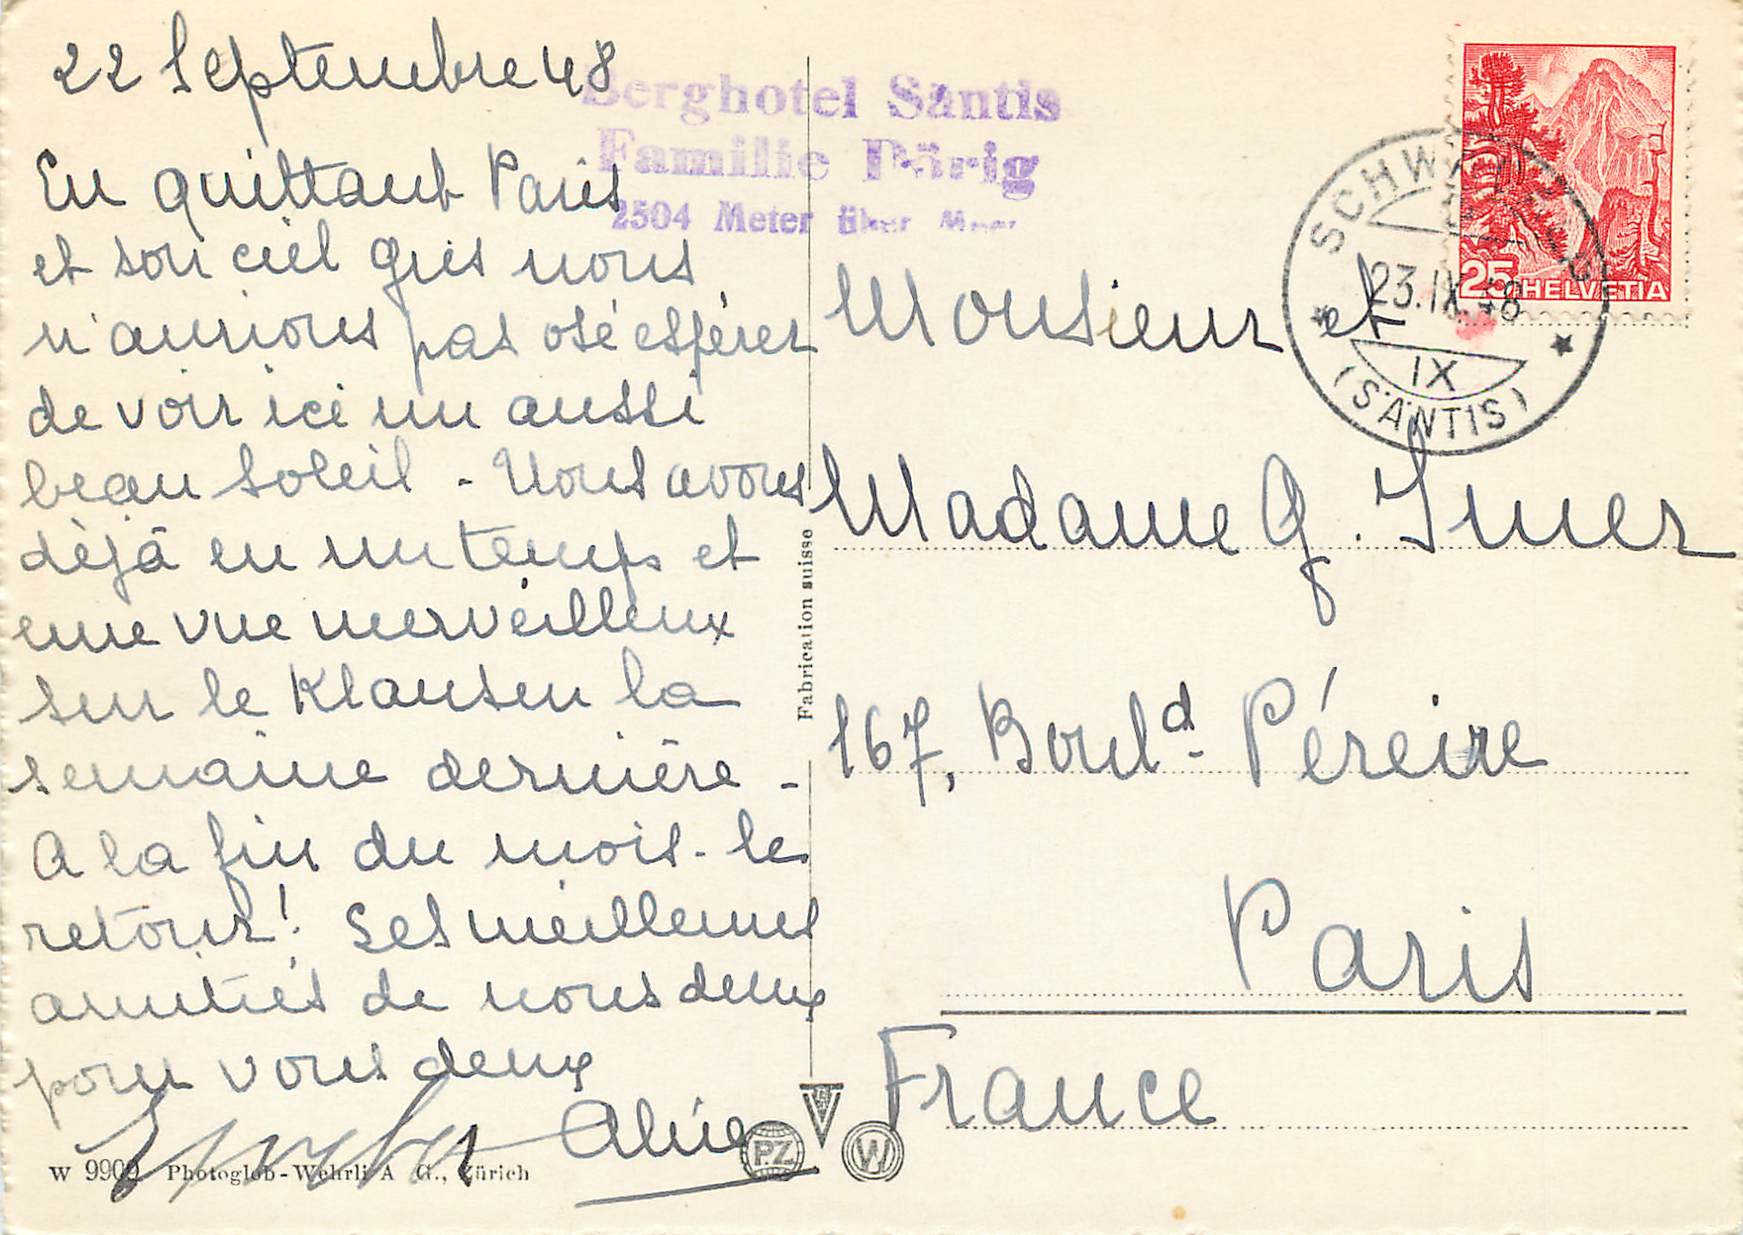 22 Septembre 48
En quittant Paris
et son ciel gris nous
n'aurions pas osé espérer
de voir ici un aussi
beau soleil - Nous avons
déjà eu un temps et
une vue merveilleux
sur le Klausen la
semaine dernière -
A la fin du mois - le
retour! Les meilleures
amitiés de nous deux
pour vous deux
Aline
W 9909 Photoglob-Wehrli A G., Zürich
Berghotel Säntis
Familie Dörig
2504 Meter über Meer
Fabrication suisse
PZ
W
25 HELVETIA
23.IX.48
IX
(SÄNTIS)
Monsieur et
Madame G. Imer
167, Boul^d. Péreire
Paris
France